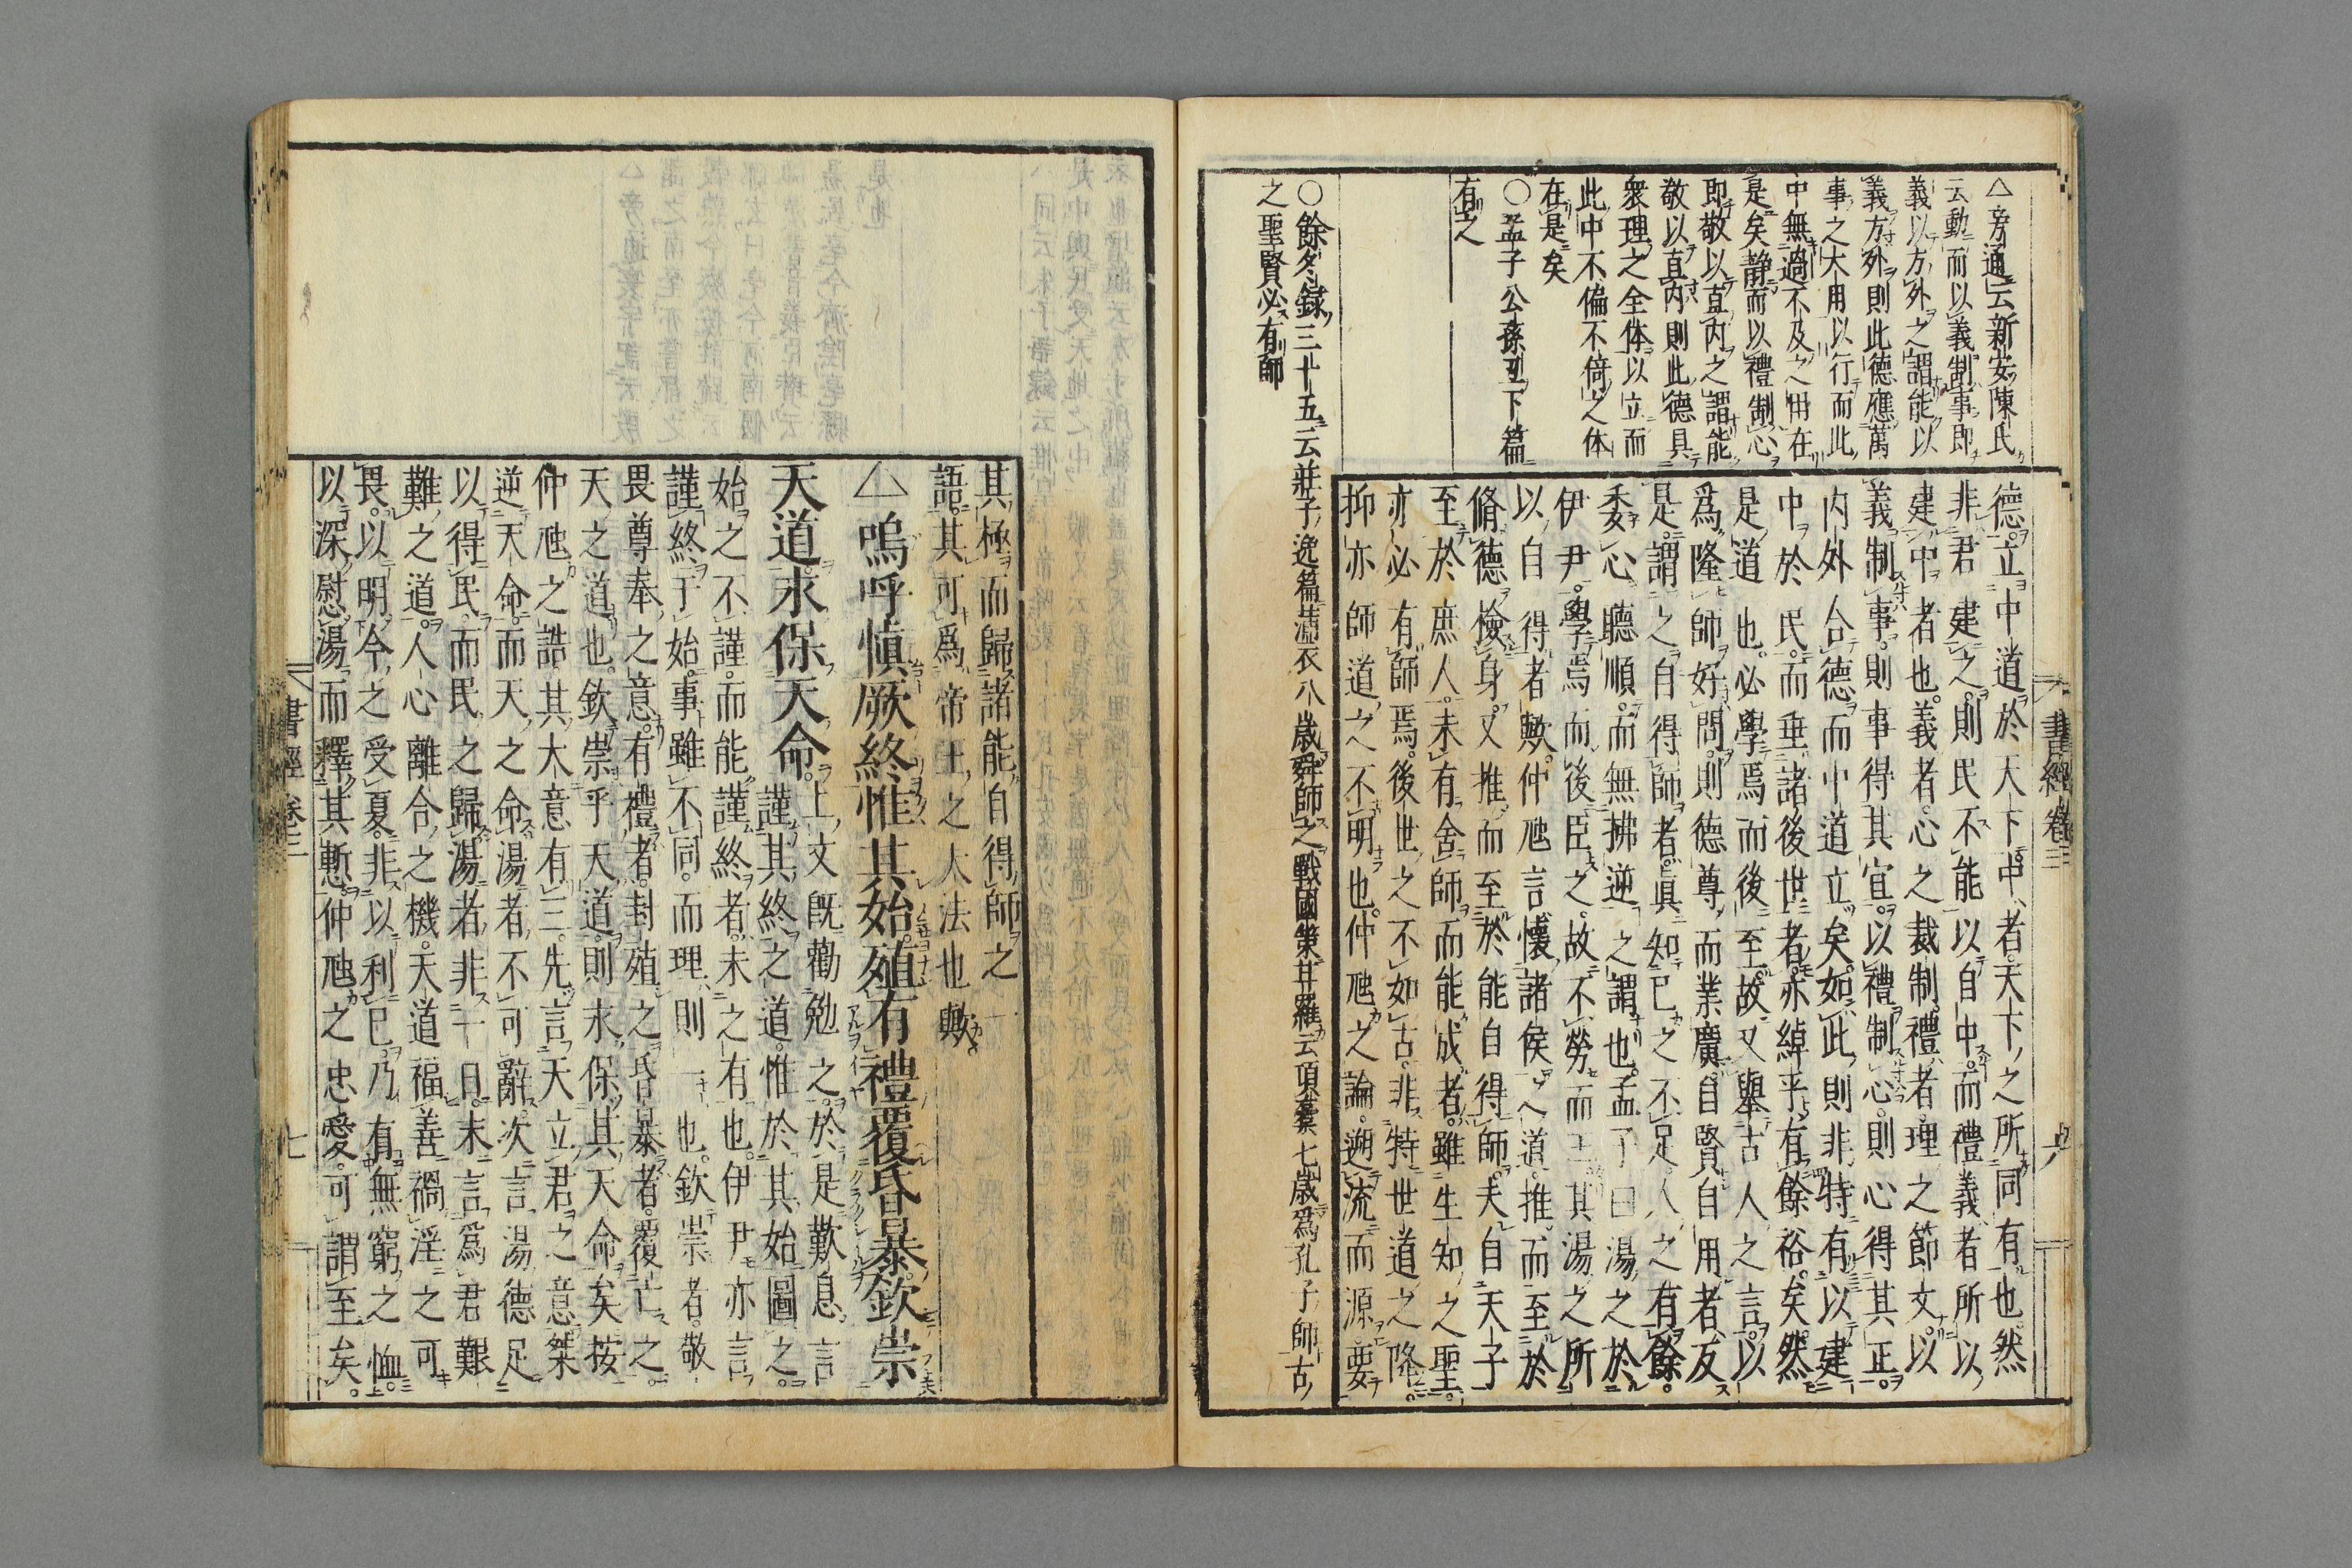 △旁通云新安陳氏
云動而以義制事即
義以方外之謂能以
義方外則此德應萬
事之大用以行而此
中無過不及之用在
是矣靜而以禮制心
即敬以直內之謂能
敬以直內則此德具
衆理之全体以立而
此中不偏不倚之体
在是矣
○孟子公孫丑下篇
有之
德立中道於天下中者天下之所同有也然
非君建之則民不能以自中而禮義者所以
建中者也義者心之裁制禮者理之節文以
義制事則事得其宜以禮制心則心得其正
内外合德而中道立矣如此則非特有以建
中於民而垂諸後世者亦綽乎有餘裕矣然
是道也必學焉而後至故又舉古人之言以
爲隆師好問則德尊而業廣自賢自用者反
是謂之自得師者眞知己之不足人之有餘
委心聽順而無拂逆之謂也孟子曰湯之於
伊尹學焉而後臣之故不勞而王其湯之所
以自得者歟仲虺言懷諸侯之道推而至於
脩德檢身又推而至於能自得師夫自天子
至於庶人未有舍師而能成者雖生知之聖
亦必有師焉後世之不如古非特世道之降
抑亦師道之不明也仲虺之論遡流而源要
○餘冬録三十五云莊子逸篇蒲衣八歳舜師之戰國策甘羅云項橐七歳爲孔子師古
之聖賢必有師
書經卷三
六
其極而歸諸能自得師之
語其可爲帝王之大法也歟
△嗚呼愼厥終惟其始殖有禮覆昏暴欽崇
天道永保天命上文既勸勉之於是歎息言
謹其終之道惟於其始圖之
始之不謹而能謹終者未之有也伊尹亦言
謹終于始事雖不同而理則一也欽崇者敬
畏尊奉之意有禮者封殖之昏暴者覆亡之
天之道也欽崇乎天道則永保其天命矣按
仲虺之誥其大意有三先言天立君之意桀
逆天命而天之命湯者不可辭次言湯德足
以得民而民之歸湯者非一日末言爲君艱
難之道人心離合之機天道福善禍淫之可
畏以明今之受夏非以利己乃有無窮之恤
以深慰湯而釋其慙仲虺之忠愛可謂至矣
書經卷三
七